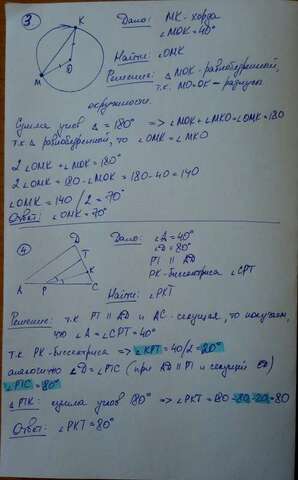 3
K
M
O
Дано: MK - хорда
∠MOK = 40°
Найти: ∠OMK
Решение: △MOK - равнобедренный,
т.к. MO = OK - радиусы
окружности.
Сумма углов △ = 180° => ∠MOK + ∠MKO + ∠OMK = 180
т.к △ равнобедренный, то ∠OMK = ∠MKO
2∠OMK + ∠MOK = 180°
2∠OMK = 180 - ∠MOK = 180 - 40 = 140
∠OMK = 140 / 2 = 70°
Ответ: ∠OMK = 70°
4
D
T
K
A
P
C
Дано: ∠A = 40°
∠D = 80°
PT ∥ AD
PK - биссектриса ∠CPT
Найти: ∠PKT
Решение: т.к PT ∥ AD и AC - секущая, то получаем,
что ∠A = ∠CPT = 40°
т.к PK - биссектриса => ∠KPT = 40/2 = 20°
аналогично ∠D = ∠PTC (при AD ∥ PT и секущей CD)
∠PTC = 80°
∠PTK: сумма углов 180° => ∠PKT = 180 - 80 - 20 = 80
Ответ: ∠PKT = 80°